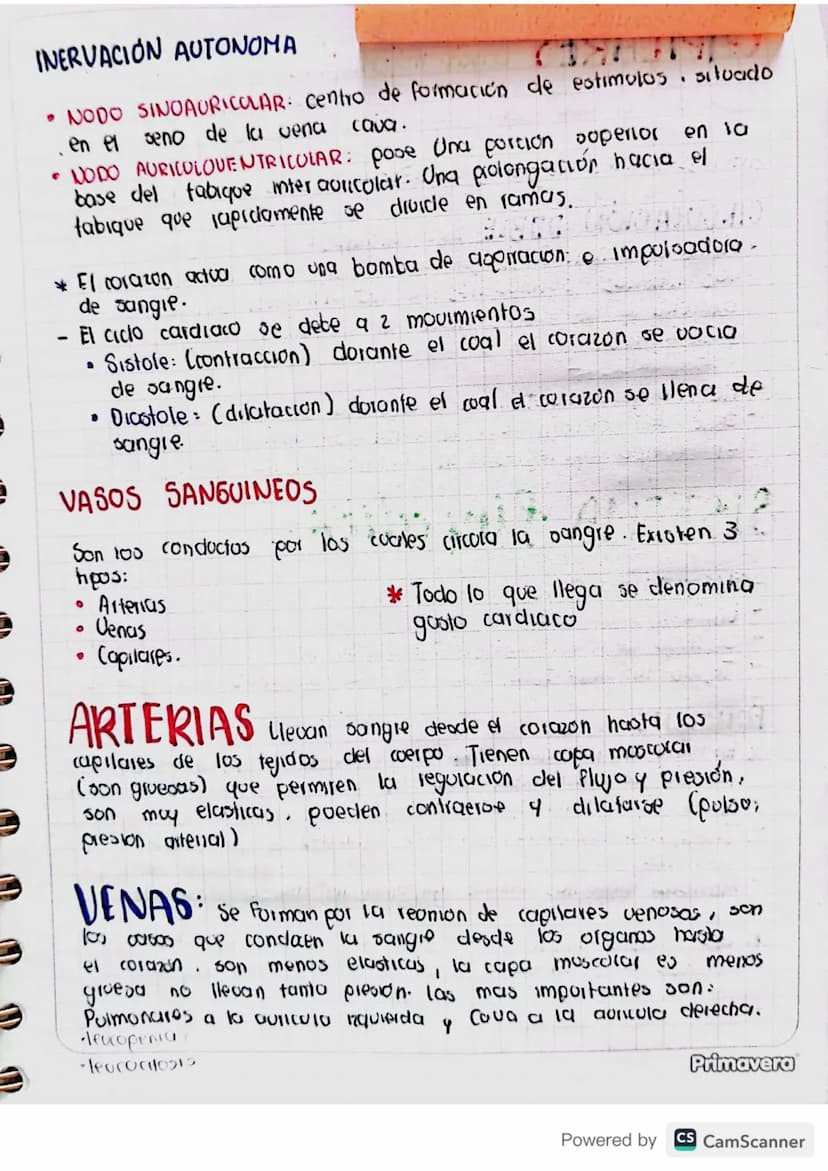 INERVACIÓN AUTONOMA
• NODO SINOAURICULAR: centro de formación de estimulos, situado
en el seno de la vena cava.
• NODO AURICULOVENTRICULAR: posee Una porción superior en la
base del tabique interauricular. Una prolongación hacia el
tabique que rapidamente se divide en ramas.
* El corazon actua como una bomba de aspiracion e impulsadora
de sangre.
- El ciclo cardiaco se debe a 2 movimientos
• Sistole: (contraccion) durante el cual el corazon se vacia
de sangre.
• Diastole: (dilatacion) durante el cual el corazón se llena de
sangre
VASOS SANGUINEOS
Son los conductos por los cuales circula la sangre. Existen 3
tipos:
• Arterias
• Venas
• Capilares.
* Todo lo que llega se denomina
gasto cardiaco
ARTERIAS llevan sangre desde el corazon hasta los
capilares de los tejidos del cuerpo. Tienen capa muscular
(son gruesas) que permiten la regulacion del flujo y presión,
son muy elasticas, pueden contraerse y dilatarse (pulso,
presion arterial)
VENAS: Se forman por la reunion de capilares venosos, son
los vasos que conducen la sangre desde los organos hasta
el corazón. son menos elasticas, la capa muscular es menos
gruesa no llevan tanta presion. las mas importantes son:
Pulmonares a la auricula izquierda y Cava a la auricula derecha.
•leucopenia
•leucocitosis
Primavera
Powered by CS CamScanner